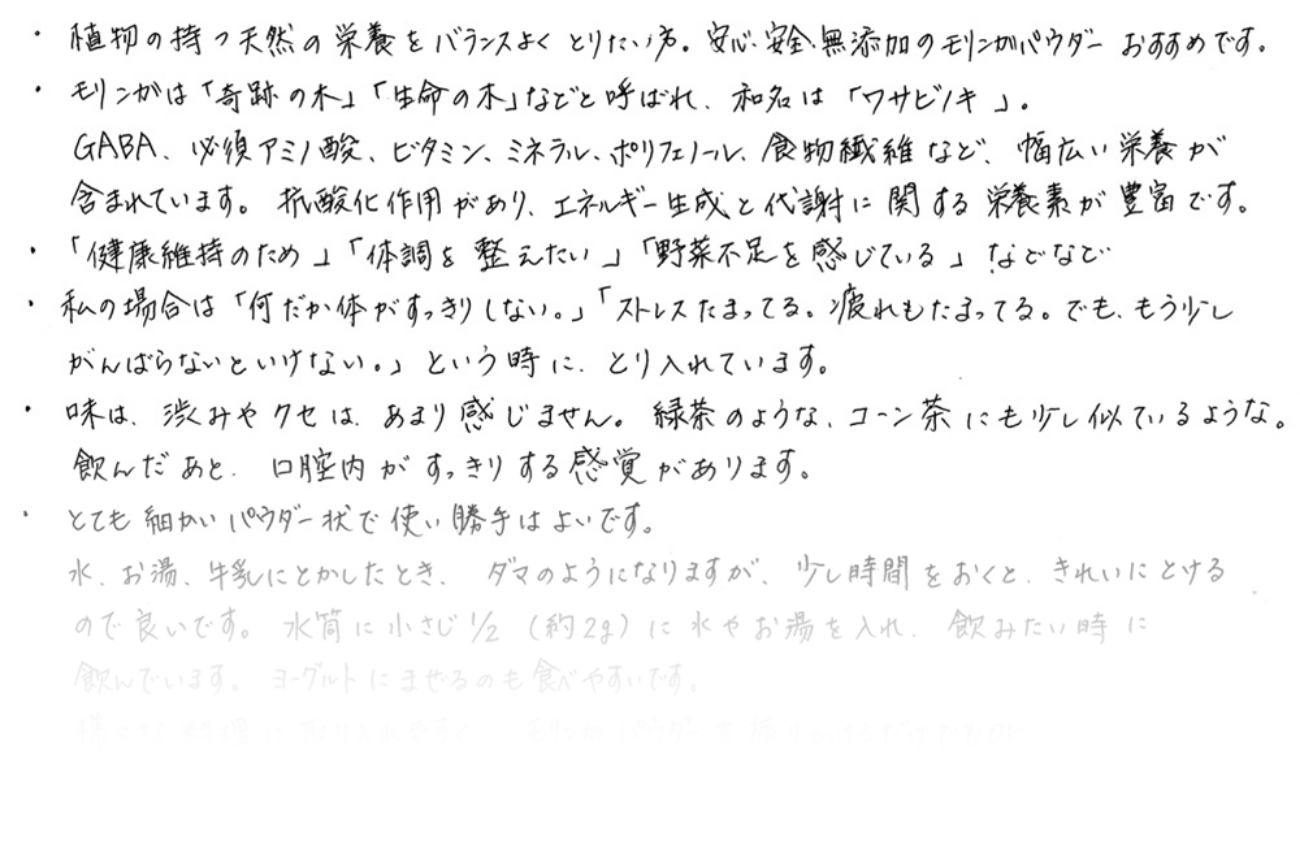 ・植物の持つ天然の栄養をバランスよくとりたい方。安心・安全・無添加のモリンガパウダーおすすめです。
・モリンガは「奇跡の木」「生命の木」などと呼ばれ、和名は「ワサビノキ」。
GABA、必須アミノ酸、ビタミン、ミネラル、ポリフェノール、食物繊維など、幅広い栄養が
含まれています。抗酸化作用があり、エネルギー生成と代謝に関する栄養素が豊富です。
・「健康維持のため」「体調を整えたい」「野菜不足を感じている」などなど
・私の場合は「何だか体がすっきりしない。」「ストレスたまってる。疲れもたまってる。でも、もう少し
がんばらないといけない。」という時に、とり入れています。
・味は、渋みやクセは、あまり感じません。緑茶のような、コーン茶にも少し似ているような。
飲んだあと、口腔内がすっきりする感覚があります。
・とても細かいパウダー状で使い勝手はよいです。
水、お湯、牛乳にとかしたとき、ダマのようになりますが、少し時間をおくと、きれいにとける
ので良いです。水筒に小さじ1/2（約2g）に水やお湯を入れ、飲みたい時に
飲んでいます。ヨーグルトにまぜるのも食べやすいです。